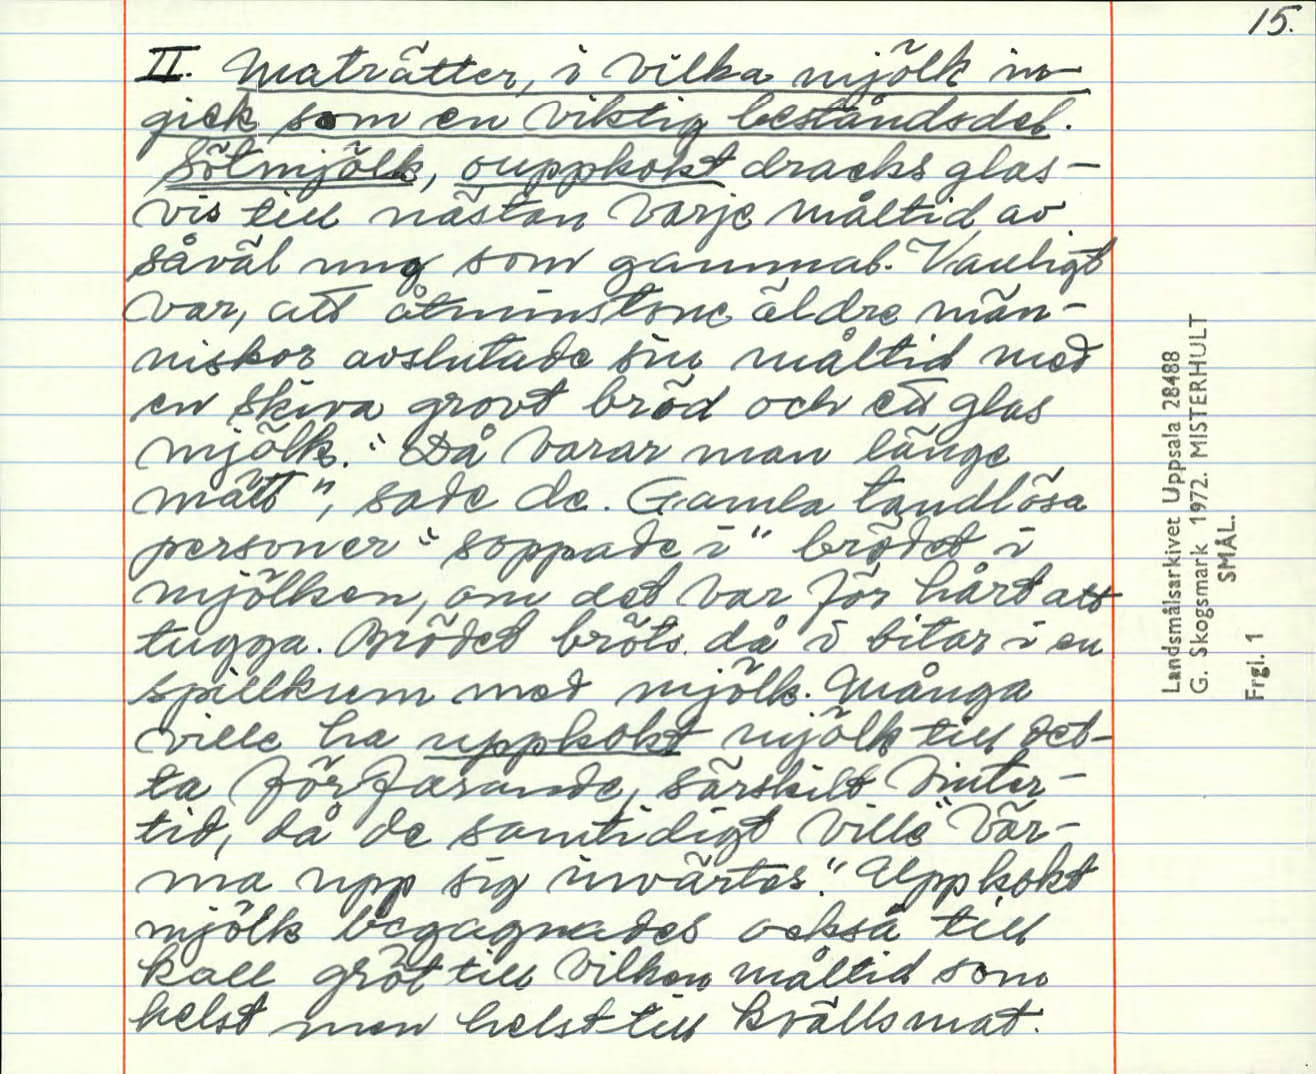 15.
II. Maträtter, i vilka mjölk in-
gick som en viktig beståndsdel.
Sötmjölk, ouppkokt dracks glas-
vis till nästan varje måltid av
såväl ung som gammal. Vanligt
var, att åtminstone äldre män-
niskor avslutade sin måltid med
en skiva grovt bröd och ett glas
mjölk. "Då varar man länge
mätt", sade de. Gamla tandlösa
personer "soppade i" brödet i
mjölken, om det var för hårt att
tugga. Brödet bröts då i bitar i en
spillkum med mjölk. Många
ville ha uppkokt mjölk till det-
ta förfarande, särskilt vinter-
tid, då de samtidigt ville "vär-
ma upp sig invärtes." Uppkokt
mjölk begagnades också till
kall gröt till vilken måltid som
helst men helst till kvällsmat.
Landsmålsarkivet Uppsala 28488
G. Skogsmark 1972. MISTERHULT
SMÅL.
Frgl. 1